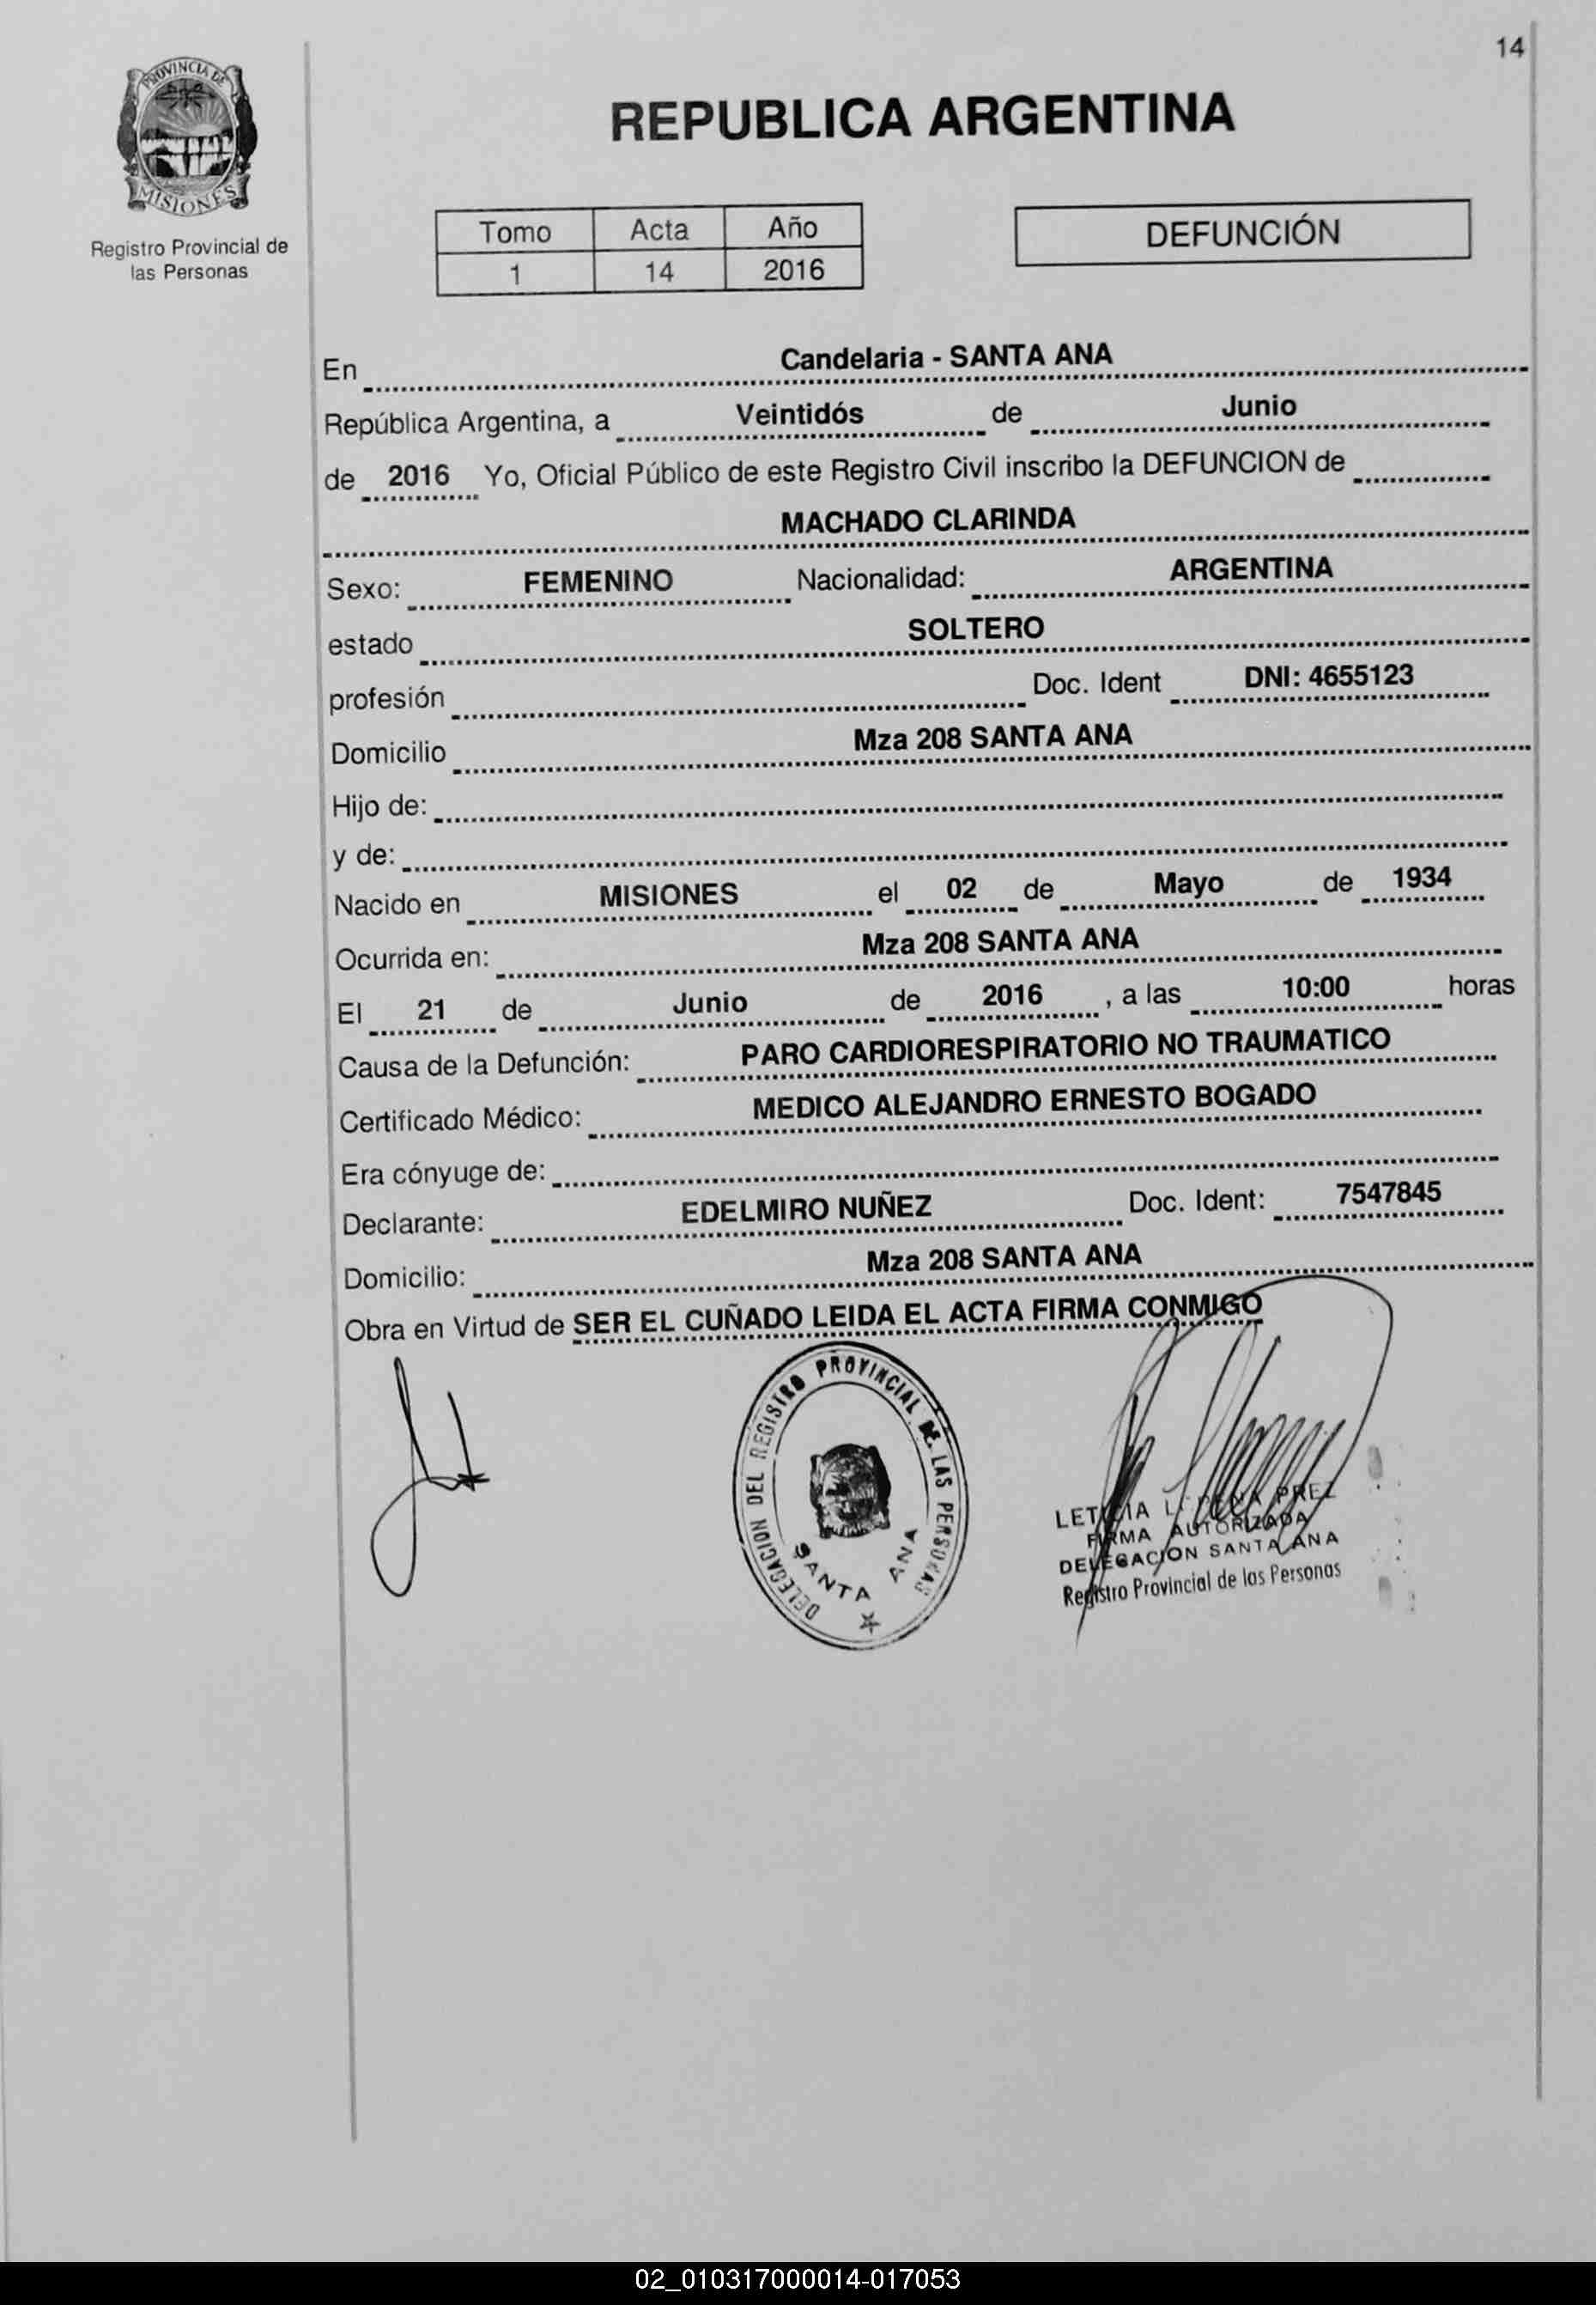 14
PROVINCIA DE
MISIONES
Registro Provincial de
las Personas
REPUBLICA ARGENTINA
Tomo Acta Año
1 14 2016
DEFUNCIÓN
En Candelaria - SANTA ANA
República Argentina, a Veintidós de Junio
de 2016 Yo, Oficial Público de este Registro Civil inscribo la DEFUNCION de
MACHADO CLARINDA
Sexo: FEMENINO Nacionalidad: ARGENTINA
estado SOLTERO
profesión Doc. Ident DNI: 4655123
Domicilio Mza 208 SANTA ANA
Hijo de:
y de:
Nacido en MISIONES el 02 de Mayo de 1934
Ocurrida en: Mza 208 SANTA ANA
El 21 de Junio de 2016 , a las 10:00 horas
Causa de la Defunción: PARO CARDIORESPIRATORIO NO TRAUMATICO
Certificado Médico: MEDICO ALEJANDRO ERNESTO BOGADO
Era cónyuge de:
Declarante: EDELMIRO NUÑEZ Doc. Ident: 7547845
Domicilio: Mza 208 SANTA ANA
Obra en Virtud de SER EL CUÑADO LEIDA EL ACTA FIRMA CONMIGO
DELEGACION DEL REGISTRO PROVINCIAL DE LAS PERSONAS
SANTA ANA
LETICIA
FIRMA AUTORIZADA
DELEGACION SANTA ANA
Registro Provincial de las Personas
02_010317000014-017053